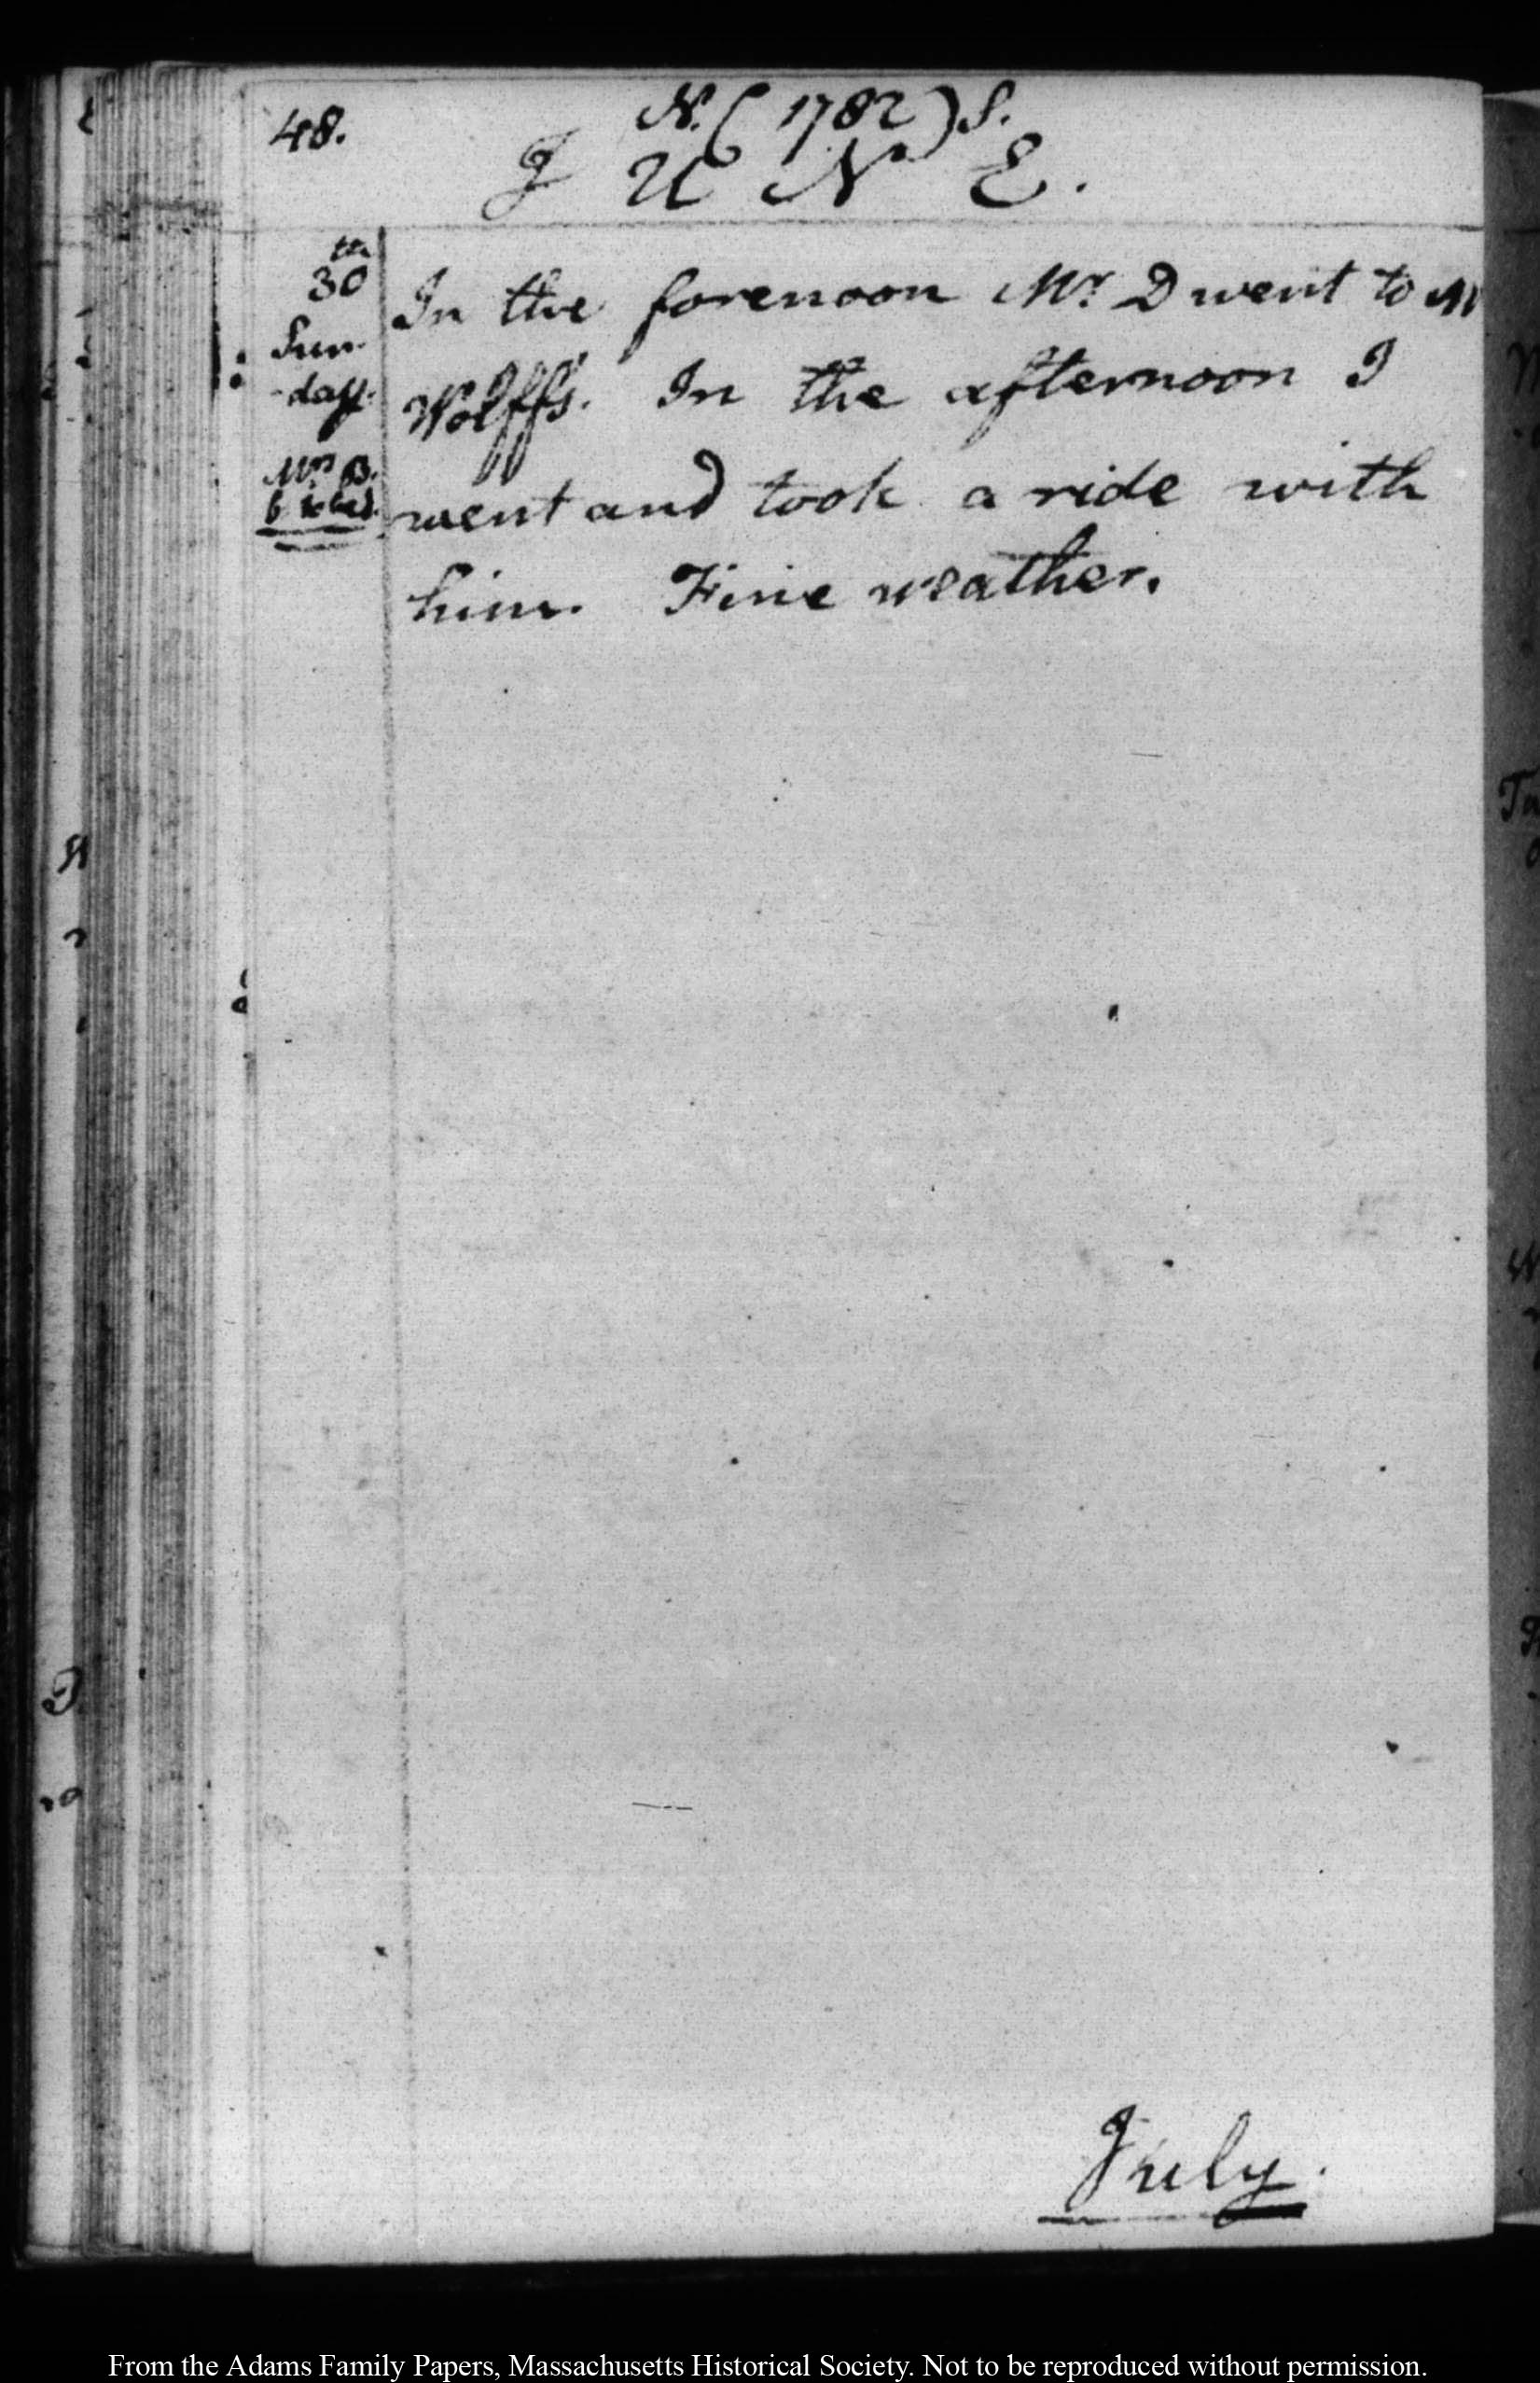 48.
N. (1782) S.
JUNE.
30th
Sun-
-day.
Mrs. B.
In the forenoon Mr. D went to M
Wolff's. In the afternoon I
went and took a ride with
him. Fine weather.
July.
From the Adams Family Papers, Massachusetts Historical Society. Not to be reproduced without permission.